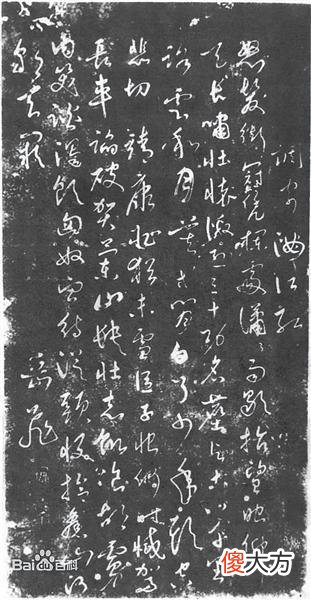 調寄滿江紅
怒髮衝冠凭欄處瀟瀟雨歇抬望眼仰
天長嘯壯懷激烈三十功名塵與土八千里
路雲和月莫等閒白了少年頭空
悲切靖康恥猶未雪臣子恨何時滅駕
長車踏破賀蘭山缺壯志飢餐胡虜
肉笑談渴飲匈奴血待從頭收拾舊山河
朝天闕
岳飛
Bai百科
傻大方